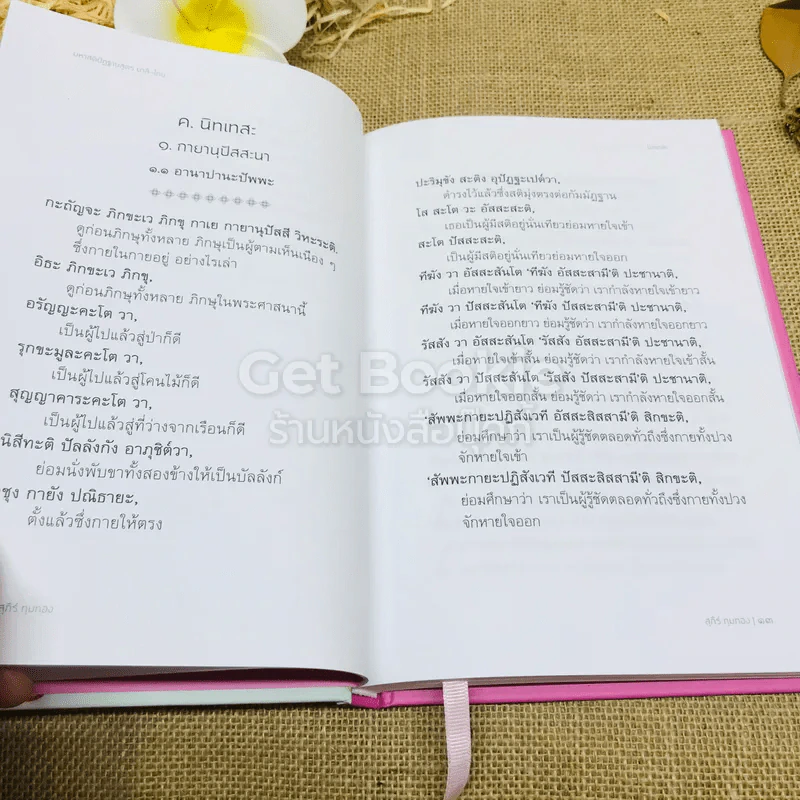 มหาสติปัฏฐานสูตร บาลี-ไทย
ค. นิทเทสะ
๑. กายานุปัสสะนา
๑.๑ อานาปานะปัพพะ
กะถัญจะ ภิกขะเว ภิกขุ กาเย กายานุปัสสี วิหะระติ.
ดูก่อนภิกษุทั้งหลาย ภิกษุเป็นผู้ตามเห็นเนือง ๆ
ซึ่งกายในกายอยู่ อย่างไรเล่า
อิธะ ภิกขะเว ภิกขุ,
ดูก่อนภิกษุทั้งหลาย ภิกษุในพระศาสนานี้
อรัญญะคะโต วา,
เป็นผู้ไปแล้วสู่ป่าก็ดี
รุกขะมูละคะโต วา,
เป็นผู้ไปแล้วสู่โคนไม้ก็ดี
สุญญาคาระคะโต วา,
เป็นผู้ไปแล้วสู่ที่ว่างจากเรือนก็ดี
นิสีทะติ ปัลลังกัง อาภุชิต๎วา,
ย่อมนั่งพับขาทั้งสองข้างให้เป็นบัลลังก์
ชุง กายัง ปณิธายะ,
ตั้งแล้วซึ่งกายให้ตรง
สุภีร์ ทุมทอง
ปะริมุขัง สะติง อุปัฏฐะเปต๎วา,
ดำรงไว้แล้วซึ่งสติมุ่งตรงต่อกัมมัฏฐาน
โส สะโต วะ อัสสะสะติ,
เธอเป็นผู้มีสติอยู่นั่นเทียวย่อมหายใจเข้า
สะโต ปัสสะสะติ,
เป็นผู้มีสติอยู่นั่นเทียวย่อมหายใจออก
ทีฆัง วา อัสสะสันโต ‘ทีฆัง อัสสะสามี’ติ ปะชานาติ,
เมื่อหายใจเข้ายาว ย่อมรู้ชัดว่า เรากำลังหายใจเข้ายาว
ทีฆัง วา ปัสสะสันโต ‘ทีฆัง ปัสสะสามี’ติ ปะชานาติ,
เมื่อหายใจออกยาว ย่อมรู้ชัดว่า เรากำลังหายใจออกยาว
รัสสัง วา อัสสะสันโต ‘รัสสัง อัสสะสามี’ติ ปะชานาติ,
เมื่อหายใจเข้าสั้น ย่อมรู้ชัดว่า เรากำลังหายใจเข้าสั้น
รัสสัง วา ปัสสะสันโต ‘รัสสัง ปัสสะสามี’ติ ปะชานาติ,
เมื่อหายใจออกสั้น ย่อมรู้ชัดว่า เรากำลังหายใจออกสั้น
‘สัพพะกายะปฏิสังเวที อัสสะสิสสามี’ติ สิกขะติ,
ย่อมศึกษาว่า เราเป็นผู้รู้ชัดตลอดทั่วถึงซึ่งกายทั้งปวง
จักหายใจเข้า
‘สัพพะกายะปฏิสังเวที ปัสสะสิสสามี’ติ สิกขะติ,
ย่อมศึกษาว่า เราเป็นผู้รู้ชัดตลอดทั่วถึงซึ่งกายทั้งปวง
จักหายใจออก
สุภีร์ ทุมทอง | ๑๓
Get Bookie